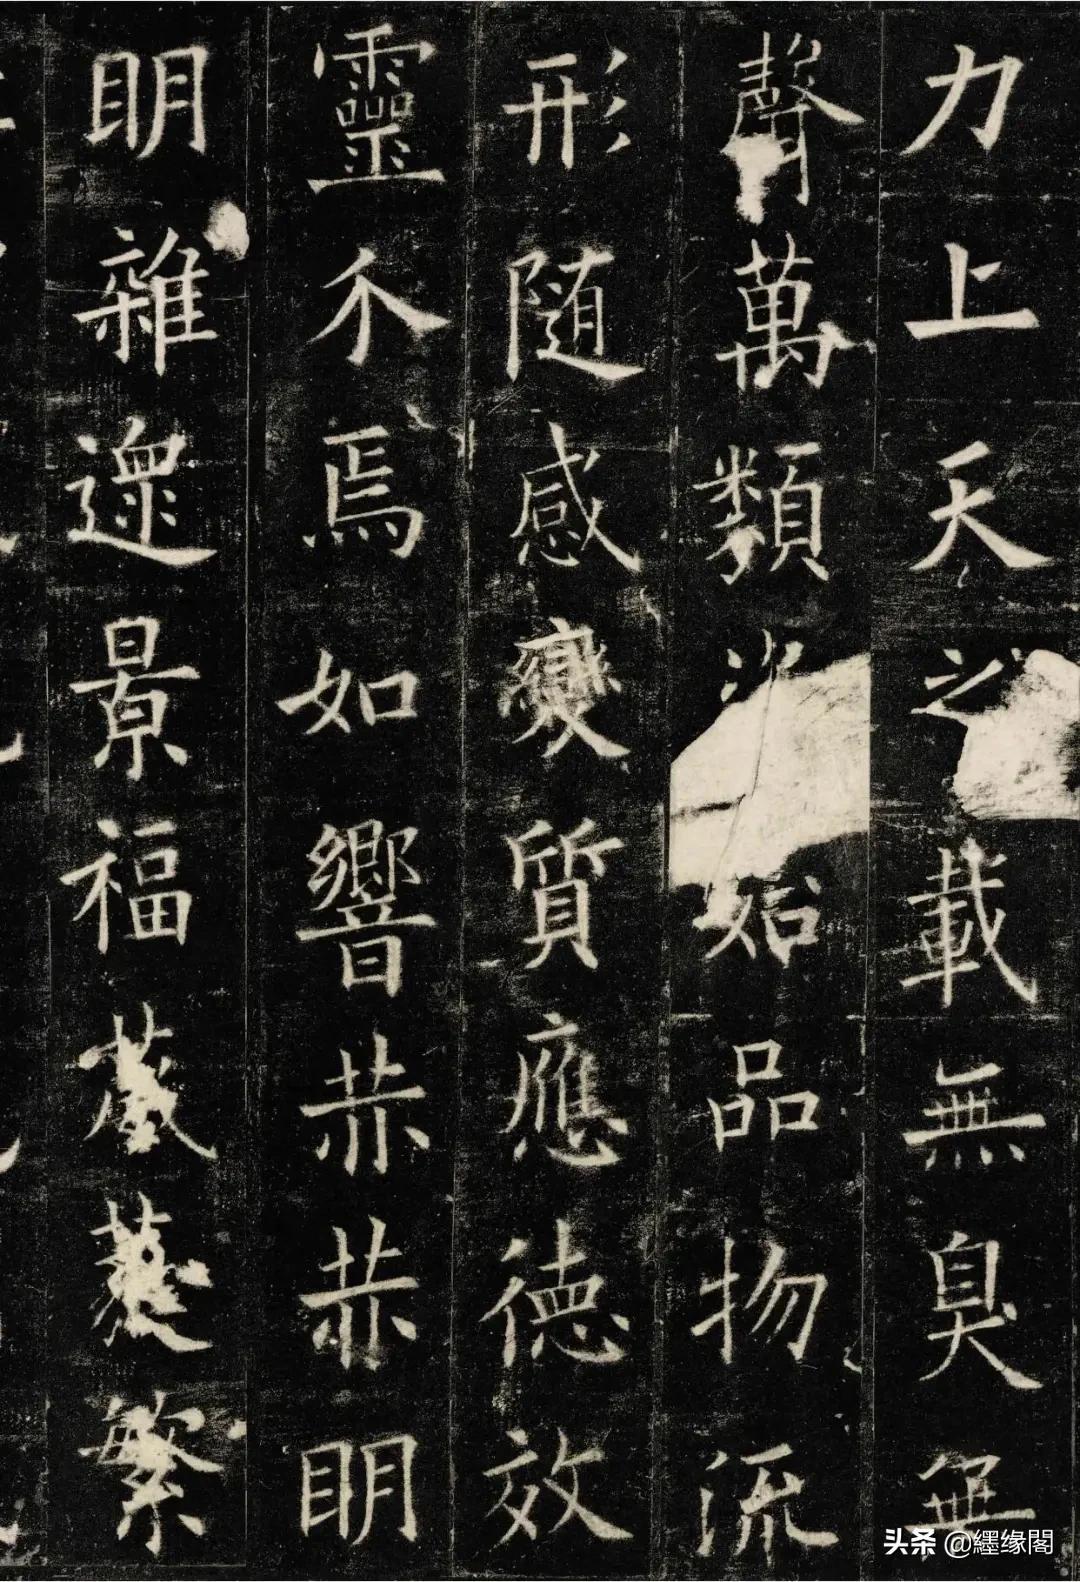 力上天之載無臭無
聲萬類資始品物流
形随感變質應德效
靈不焉如響赫赫明
明雜遝景福葳蕤繁
头条 @纆缘閣